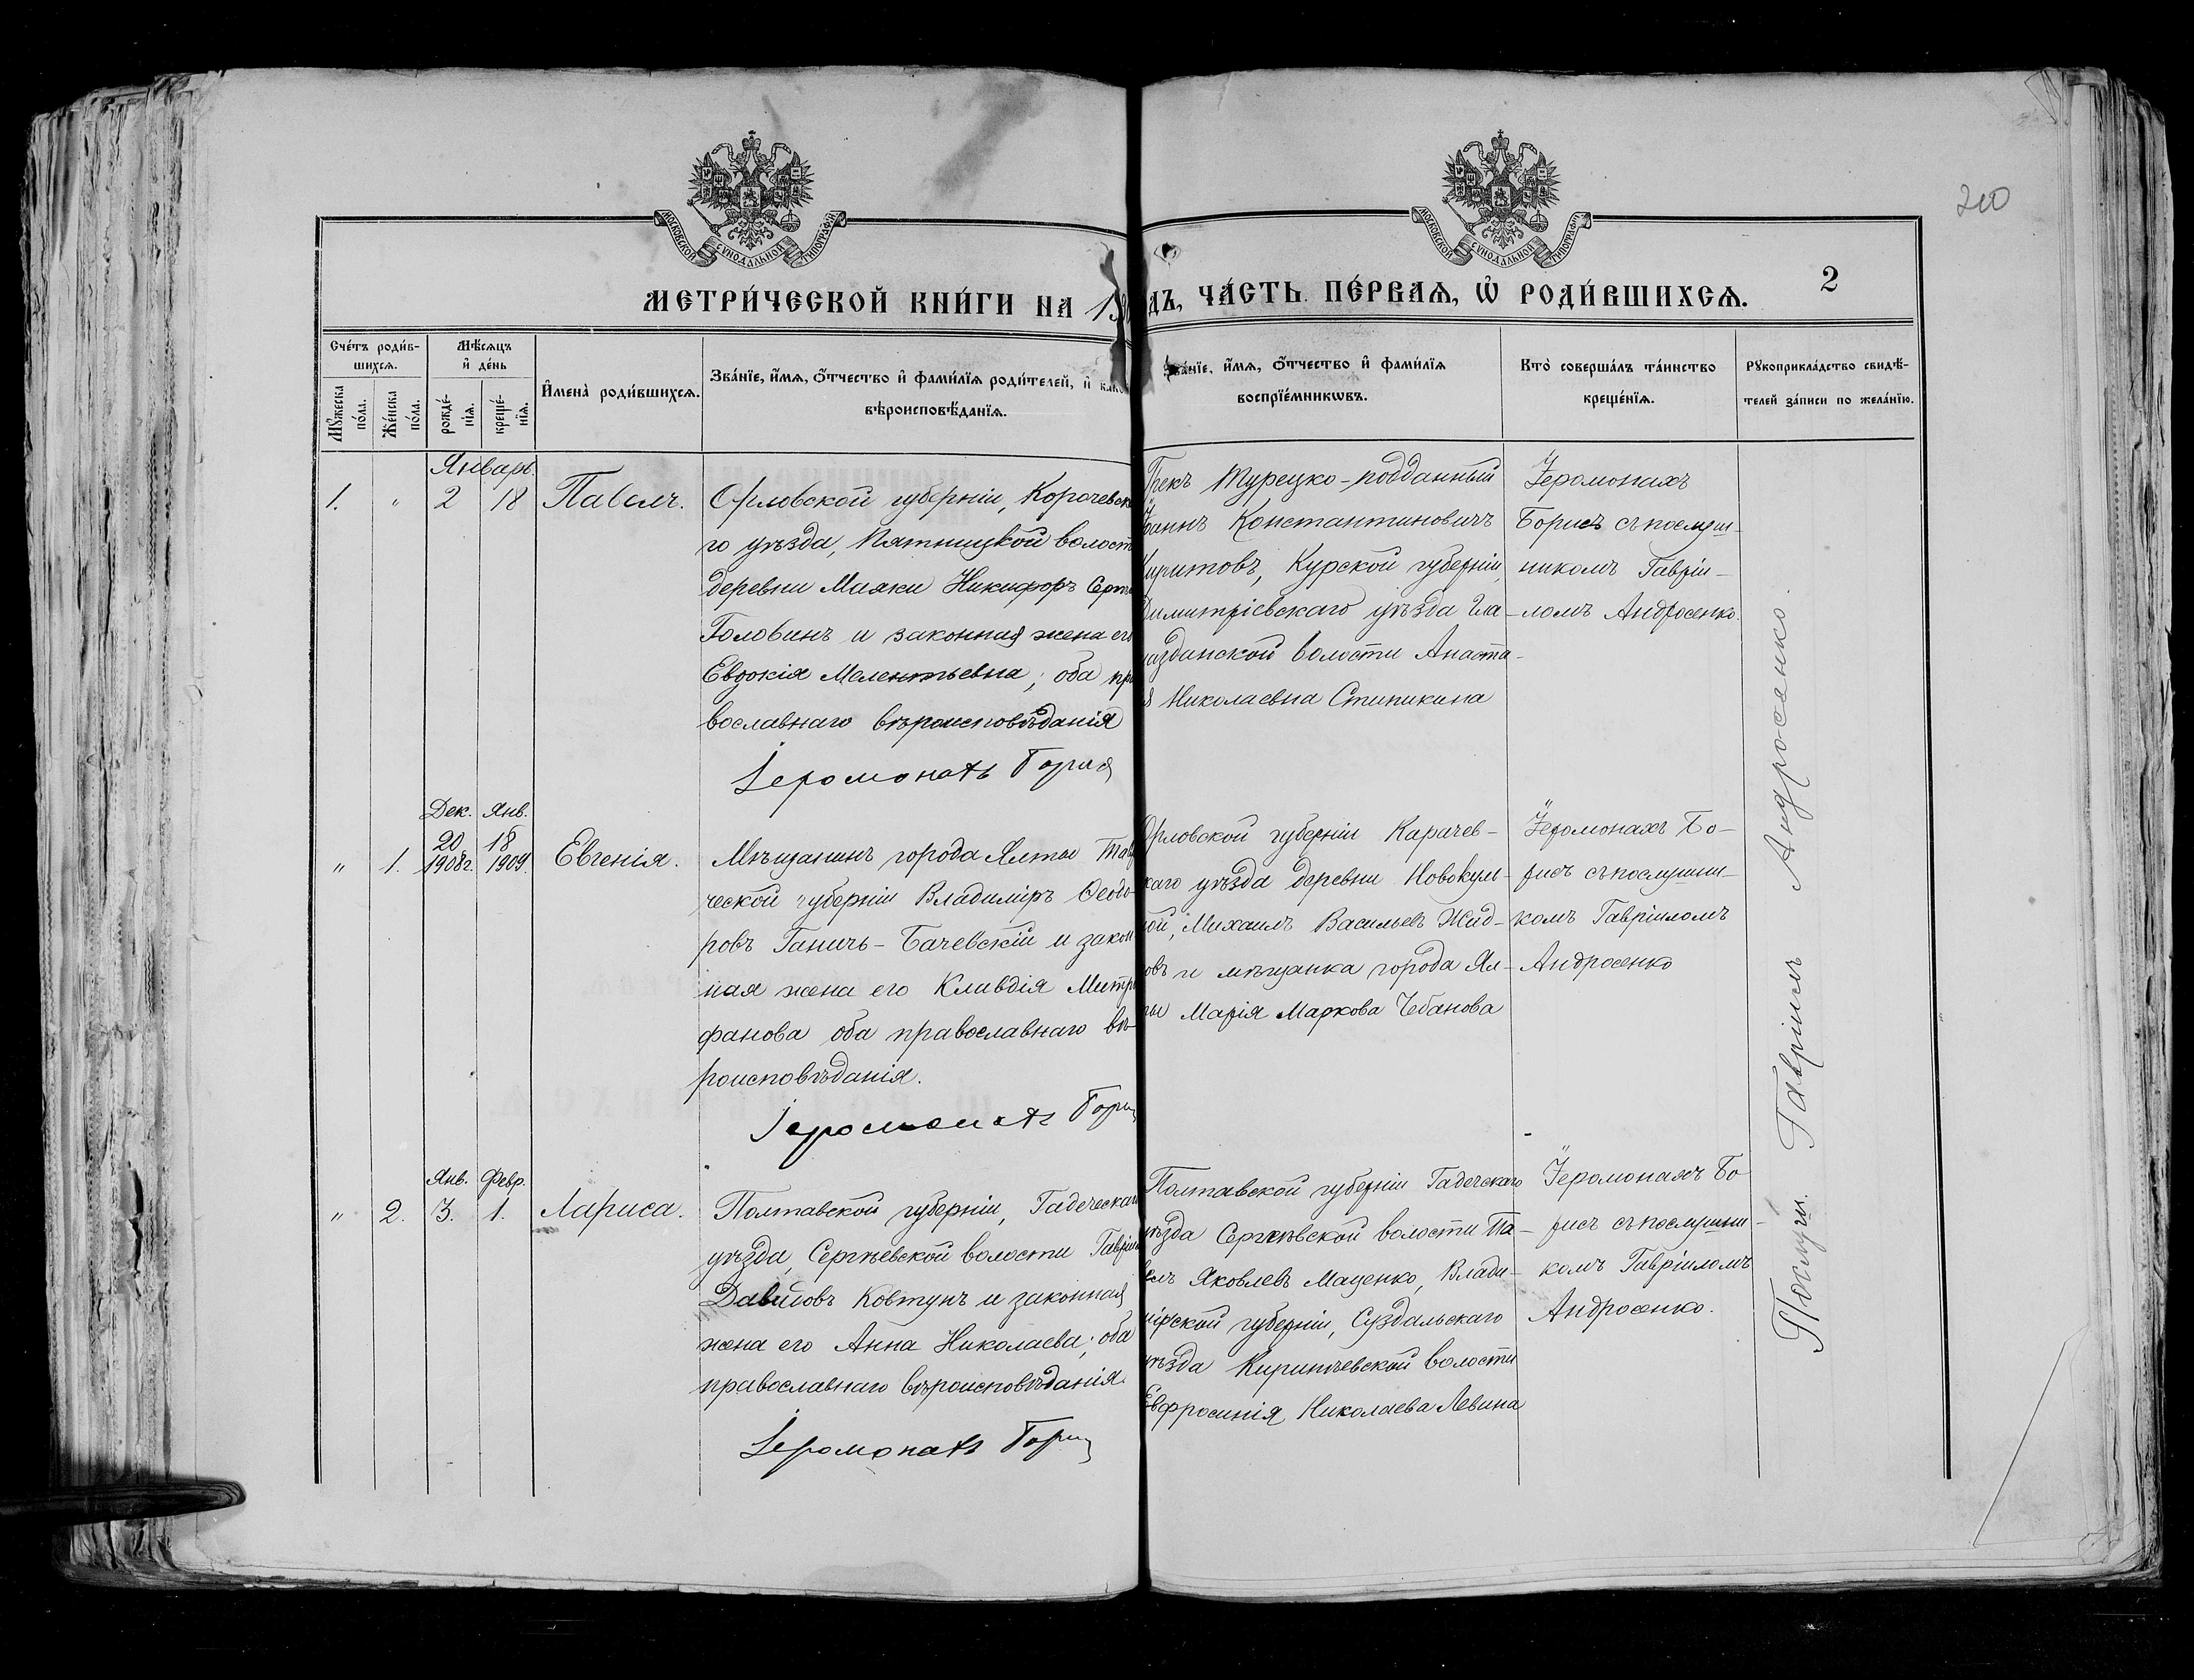 200
МОСКОВСКОЙ СѴНОДАЛЬНОЙ ТИПОГРАФІИ
МОСКОВСКОЙ СѴНОДАЛЬНОЙ ТИПОГРАФІИ
МЕТРИ́ЧЕСКОЙ КНИ́ГИ НА 19
ДЪ, ЧА́СТЬ ПЕ́РВАѦ, Ѡ҆ РОДИ́ВШИХСѦ.
2
Сче́тъ роди́в-
шихсѧ.
Мꙋ́жеска
по́ла.
Же́нска
по́ла.
Мѣ́сѧцъ
и҆ де́нь
рожде́-
нїѧ.
креще́-
нїѧ.
И҆мена̀ роди́вшихсѧ.
Зва́нїе, и҆́мѧ, ѻ҆́тчество и҆ фами́лїѧ роди́телей, и҆
вѣроисповѣ́данїѧ.
Зва́нїе, и҆́мѧ, ѻ҆́тчество и҆ фами́лїѧ
воспрїе́мникѡвъ.
Кто̀ соверша́лъ та́инство
креще́нїѧ.
Рꙋкоприкла́дство свидѣ́-
телей за́писи по жела́нїю.
Январь.
1. " 2 18 Павелъ.
Орловской губерніи, Корочевск
го уѣзда, Пятницкой волост
деревни Маяки Никифоръ Серг
Головинъ и законная жена его
Евдокія Мелентьевна; оба пр
вославнаго вѣроисповѣданія
Іеромонахъ Борисъ
Грекъ Турецко-подданный
Іоаннъ Константиновичъ
Курской губерніи,
Димитріевскаго уѣзда Гла-
зданской волости Анаста-
Николаевна Стипикина
Іеромонахъ
Борисъ съ послуш-
никомъ Гавріи-
ломъ Андросенко.
Дек. Янв.
20 18
" 1. 1908г. 1909. Евгенія.
Мѣщанинъ города Ялты Тав
ческой губерніи Владиміръ Ѳеодо-
ровъ Ганичъ-Бачевскій и закон
ная жена его Клавдія Митро
фанова оба православнаго вѣ-
роисповѣданія.
Іеромонахъ Борисъ
Орловской губерніи Карачев-
каго уѣзда деревни Новокуль-
ой, Михаилъ Васильевъ Жид-
овъ и мѣщанка города Ял-
ты Марія Маркова Чебанова
Іеромонахъ Бо-
рисъ съ послушни-
комъ Гавріиломъ
Андросенко
Янв. Февр.
" 2. 3. 1. Лариса.
Полтавской губерніи, Гадеческаго
уѣзда, Сергѣевской волости Гавріи
Давидовъ Ковтунъ и законная
жена его Анна Николаева; оба
православнаго вѣроисповѣданія.
Іеромонахъ Борисъ
Полтавской губерніи Гадечскаго
уѣзда Сергѣевской волости Па-
велъ Яковлевъ Маценко, Влади-
мірской губерніи, Суздальскаго
уѣзда Кирипчевской волости
Евфросинія Николаева Левина
Іеромонахъ Бо
рисъ съ послушни-
комъ Гавріиломъ
Андросенко.
Послуш. Гавріилъ Андросенко.